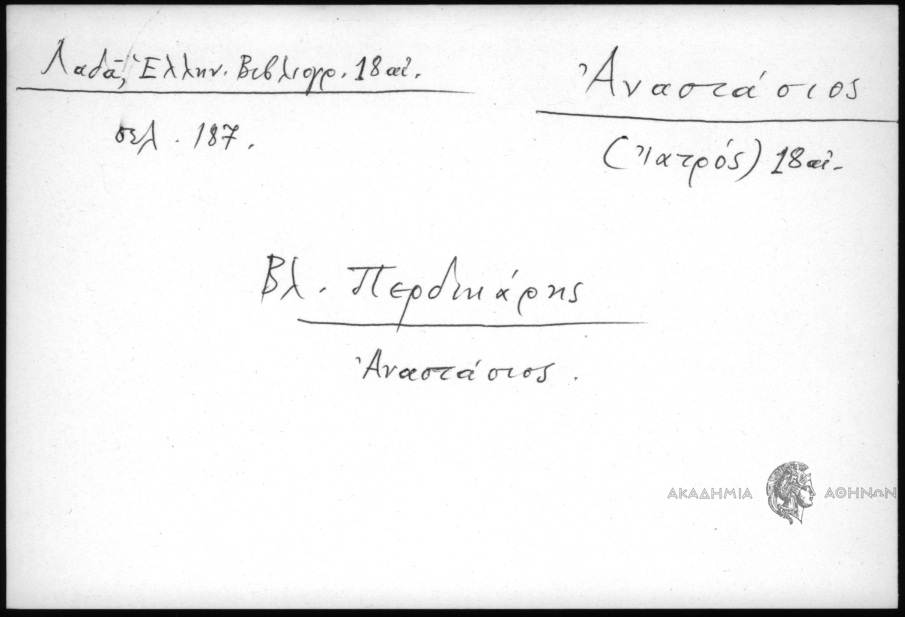 Λαδᾶ, Ἑλλην. Βιβλιογρ. 18 αἰ.
σελ. 187.
Ἀναστάσιος
(Ἰατρός) 18 αἰ.
Βλ. Περδικάρης
Ἀναστάσιος.
ΑΚΑΔΗΜΙΑ ΑΘΗΝΩΝ